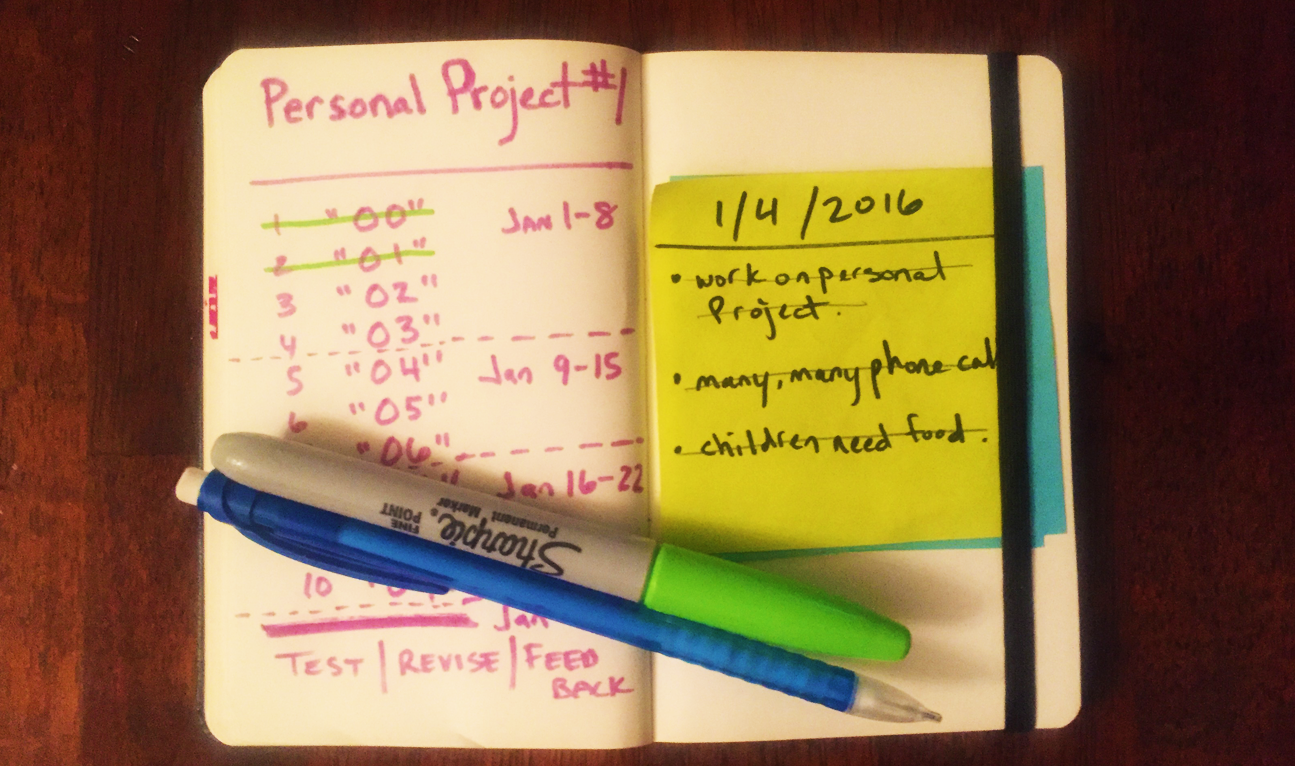 Personal Project #1
1 "00" JAN 1-8
2 "01"
3 "02"
4 "03"
5 "04" Jan 9-15
6 "05"
"06"
Jan 16-22
10
Jan
TEST | REVISE | FEED
BACK
1/4/2016
• work on personal
Project.
• many, many phone call
• children need food.
Sharpie.
Permanent Marker
FINE
POINT